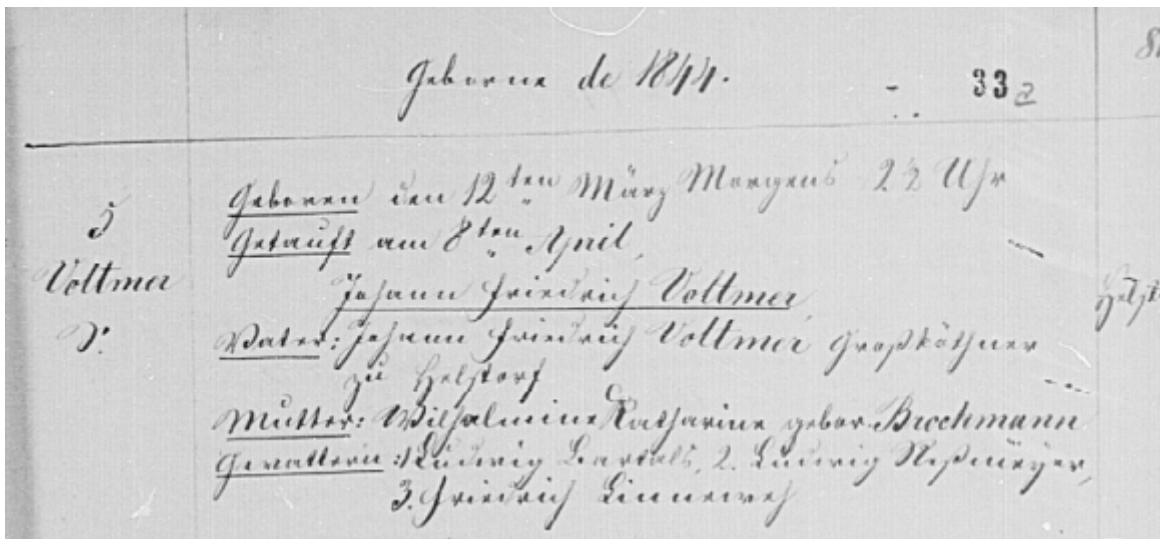 Geborne de 1844.
33
Geboren den 12ten März Morgens 2½ Uhr
5
Getauft am 8ten April,
Voltmer
Johann Friedrich Voltmer
Vater: Johann Friedrich Voltmer Großköthner
zu Helstorf
Mutter: Wilhelmine Katharine gebor. Brockmann
Gevattern: 1. Ludwig Bartels, 2. Ludwig
3. Friedrich Linneweh